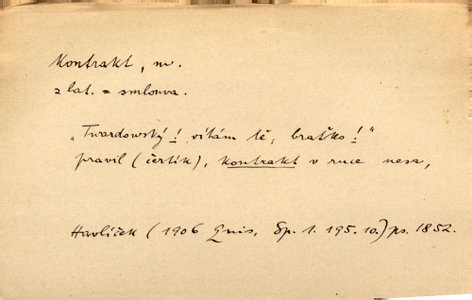 Kontrakt, m.
z lat. = smlouva.
„Twardowský! vítám tě, bratko!"
pravil (čertík), kontrakt v ruce nesa,
Havlíček (1906 Quis, Sp. 1. 195. 10.) ps. 1852.